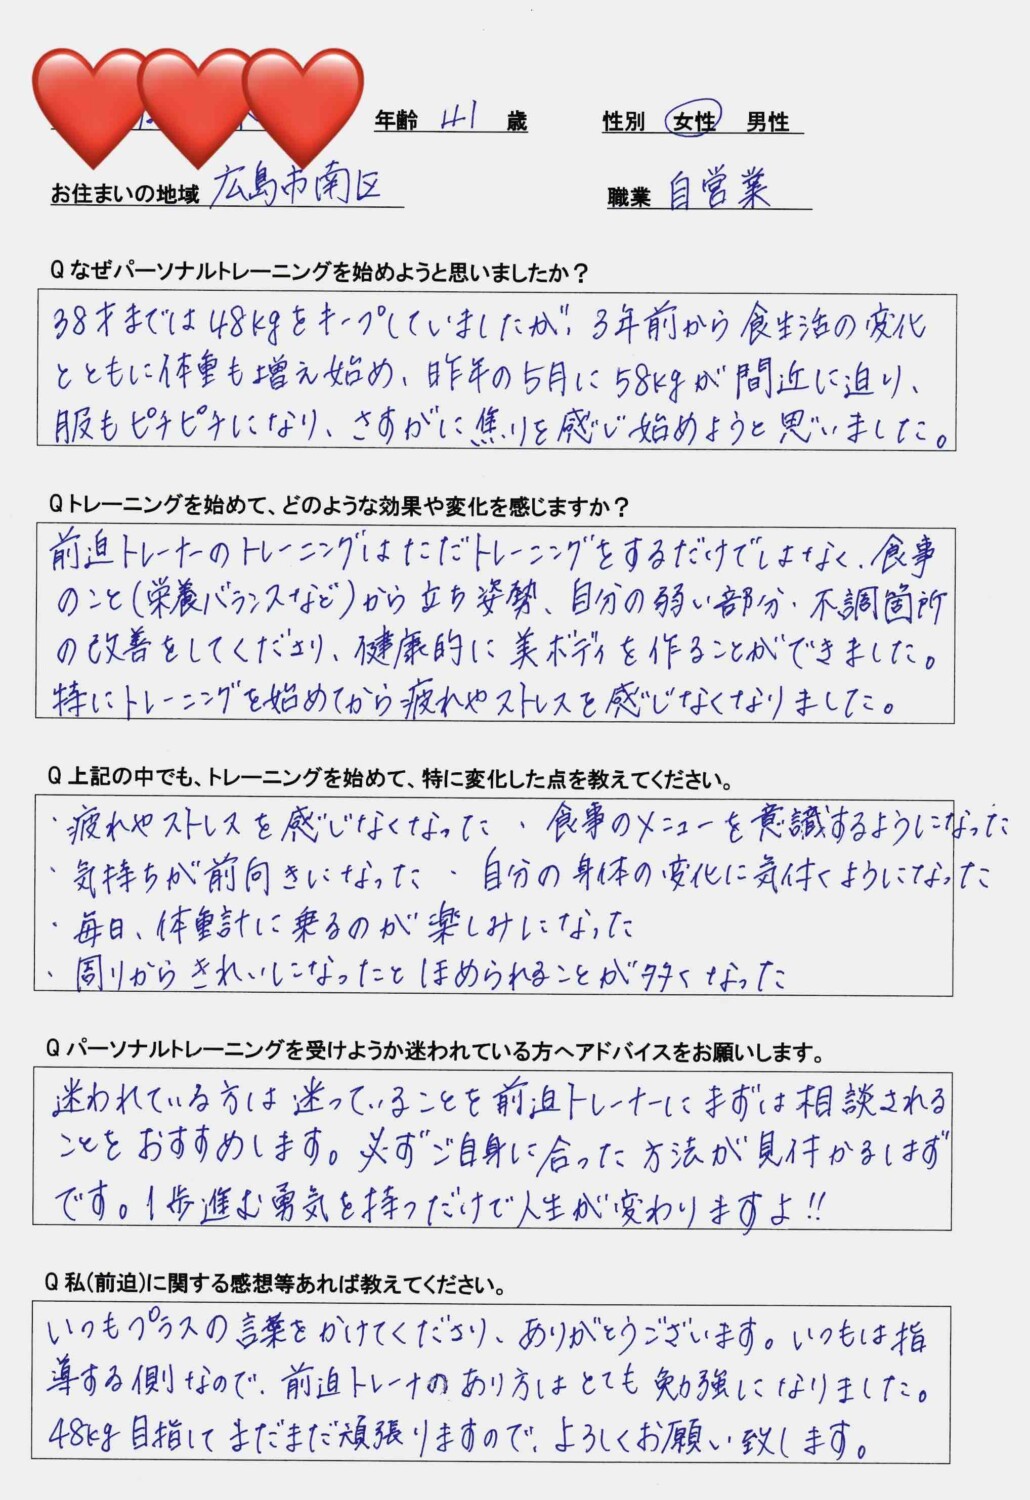 年齢 41 歳 性別 女性 男性
お住まいの地域 広島市南区 職業 自営業
Q なぜパーソナルトレーニングを始めようと思いましたか？
38才までは48kgをキープしていましたが、3年前から食生活の変化
とともに体重も増え始め、昨年の5月に58kgが間近に迫り、
服もピチピチになり、さすがに焦りを感じ始めようと思いました。
Q トレーニングを始めて、どのような効果や変化を感じますか？
前迫トレーナーのトレーニングはただトレーニングをするだけではなく、食事
のこと(栄養バランスなど)から立ち姿勢、自分の弱い部分・不調箇所
の改善をしてくださり、健康的に美ボディを作ることができました。
特にトレーニングを始めてから疲れやストレスを感じなくなりました。
Q 上記の中でも、トレーニングを始めて、特に変化した点を教えてください。
・疲れやストレスを感じなくなった ・食事のメニューを意識するようになった
・気持ちが前向きになった ・自分の身体の変化に気付くようになった
・毎日、体重計に乗るのが楽しみになった
・周りからきれいになったとほめられることが多くなった
Q パーソナルトレーニングを受けようか迷われている方へアドバイスをお願いします。
迷われている方は迷っていることを前迫トレーナーにまずは相談される
ことをおすすめします。必ずご自身に合った方法が見付かるはず
です。1歩進む勇気を持つだけで人生が変わりますよ!!
Q 私(前迫)に関する感想等あれば教えてください。
いつもプラスの言葉をかけてくださり、ありがとうございます。いつもは指
導する側なので、前迫トレーナのあり方はとても勉強になりました。
48kg目指してまだまだ頑張りますので、よろしくお願い致します。